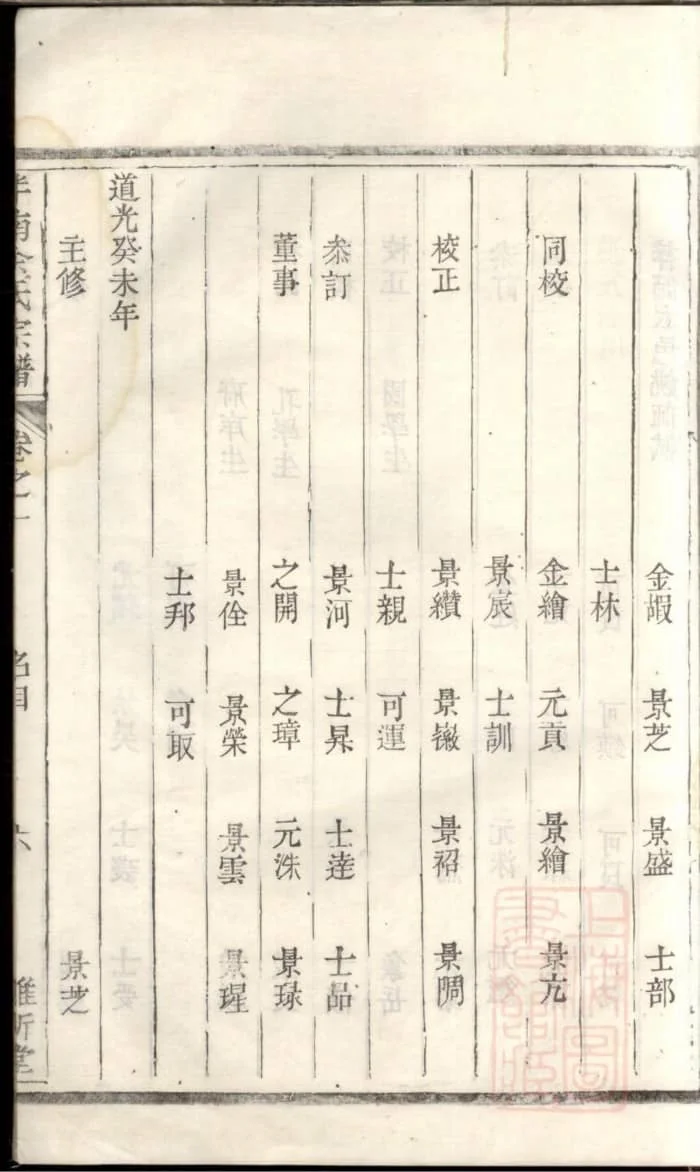 金嘏 景芝 景盛 士部
士林
同校 金繪 元貢 景繪 景亢
景宸 士訓
校正 景纘 景𢾭 景祒 景閒
士親 可運
叅訂 景河 士杲 士逹 士品
董事 之開 之璋 元洙 景琭
景佺 景榮 景雲 景瑆
士邦 可取
道光癸未年
主修 景芝
南 氏宗譜 卷之一 名目 六 維新堂